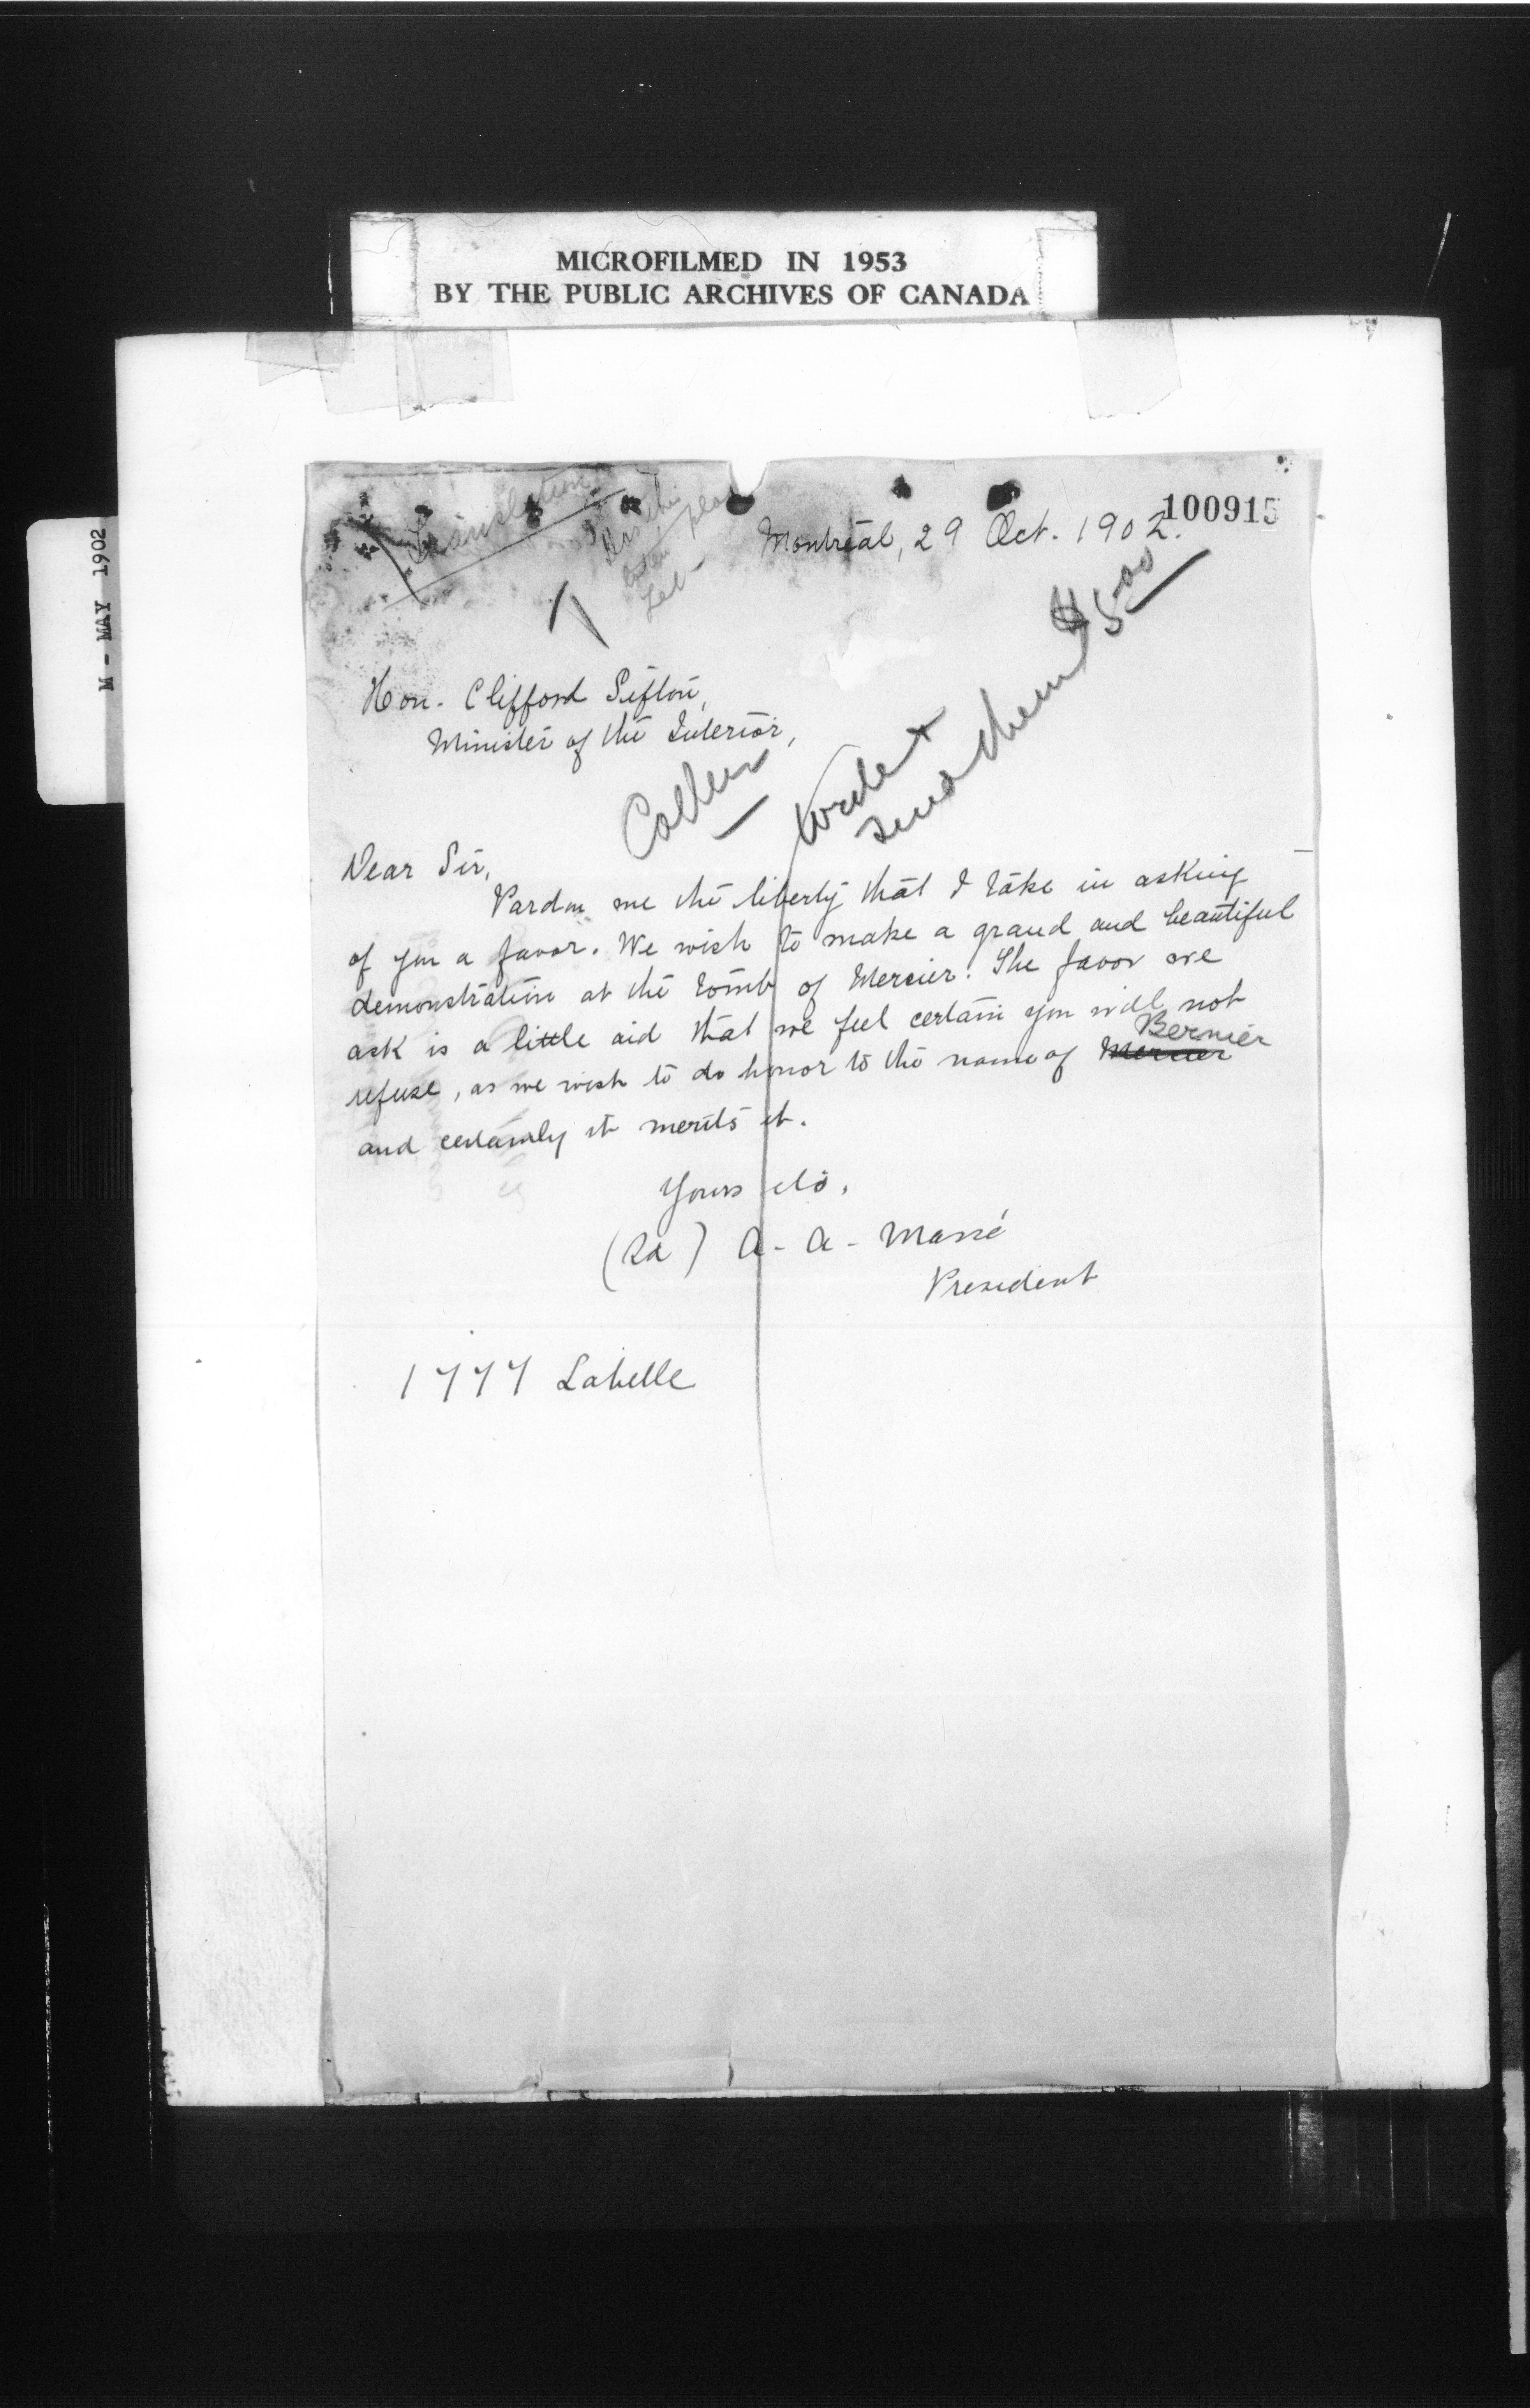 MICROFILMED IN 1953
BY THE PUBLIC ARCHIVES OF CANADA
M - MAY 1902
Translation
100915
Montreal, 29 Oct. 1902.
Hon. Clifford Sifton,
Minister of the Interior,
Write &
send them $5.00
Dear Sir,
Pardon me the liberty that I take in asking
of you a favor. We wish to make a grand and beautiful
demonstration at the tomb of Mercier. The favor we
ask is a little aid that we feel certain you will not
refuse, as we wish to do honor to the name of Mercier Bernier
and certainly it merits it.
Yours etc.
(Sd) A-A-Massé
President
1777 Labelle